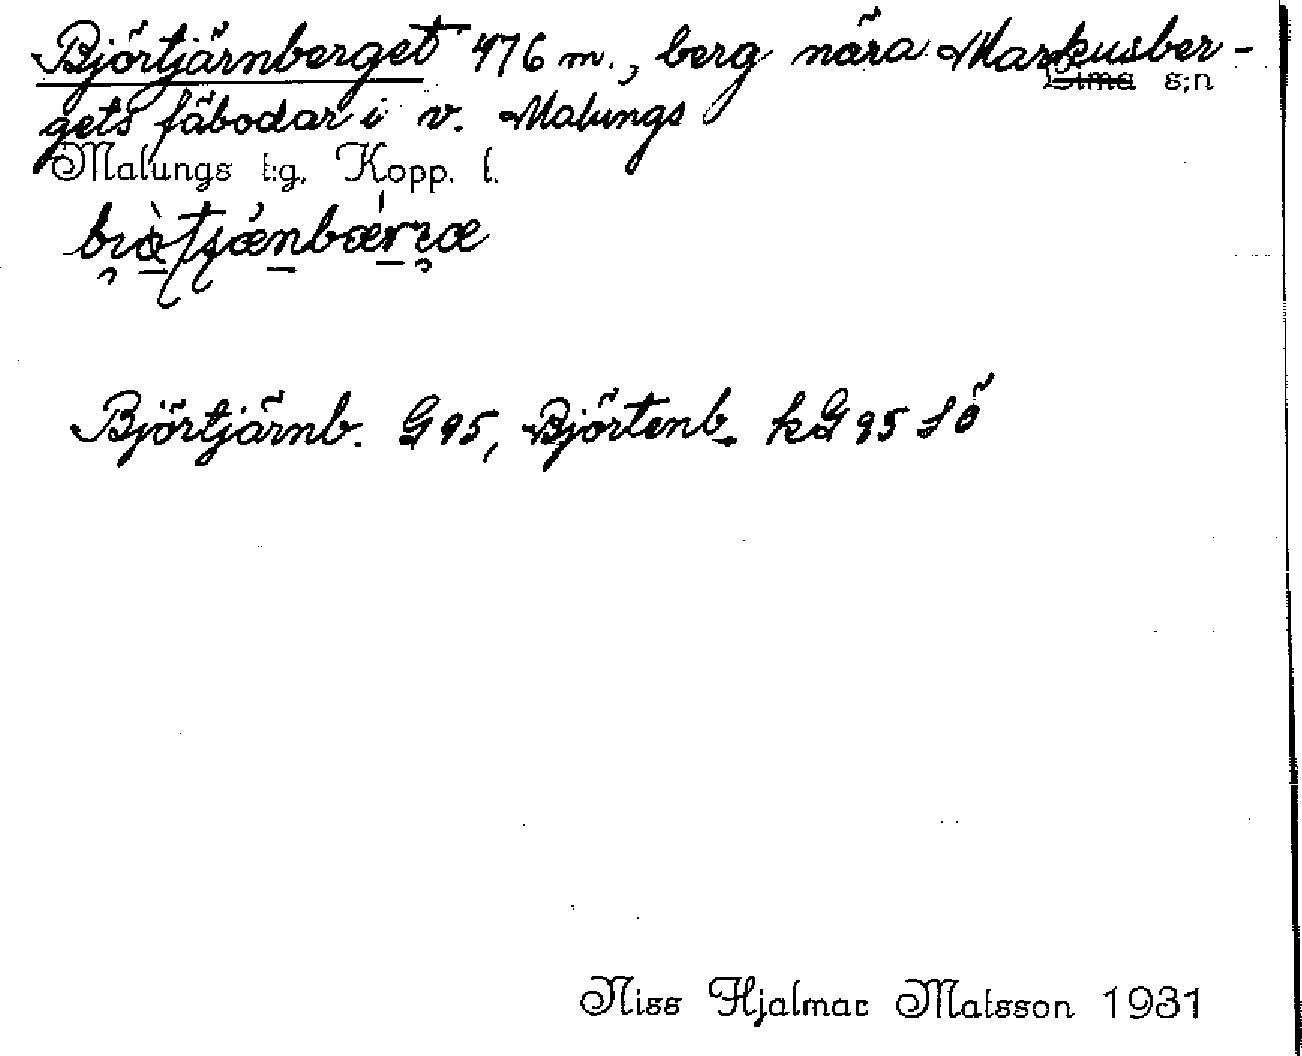 Björtjärnberget 476 m., berg nära Markusber-
Lima s:n
gets fäbodar i v. Malungs
Malungs t:g. Kopp. l.
Björtjärnb. G 95, Björtenb. kG 95 Sö
Niss Hjalmar Matsson 1931